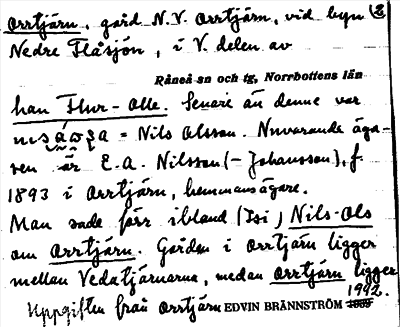 Orrtjärn, gård N.V. Orrtjärn, vid byn (2
Nedre Flåsjön, i V. delen av
Råneå sn och tg, Norrbottens län
han Thur-Olle. Senare än denne var
= Nils Olsson. Nuvarande äga-
ren är E.A. Nilsson (-Johansson), f.
1893 i Orrtjärn, hemmansägare.
Man sade förr ibland (Isi) Nils-Ols
om Orrtjärn. Gården i Orrtjärn ligger
mellan Vedatjärnarna, medan Orrtjärn ligger
Uppgiften från Orrtjärn EDVIN BRÄNNSTRÖM 1942.